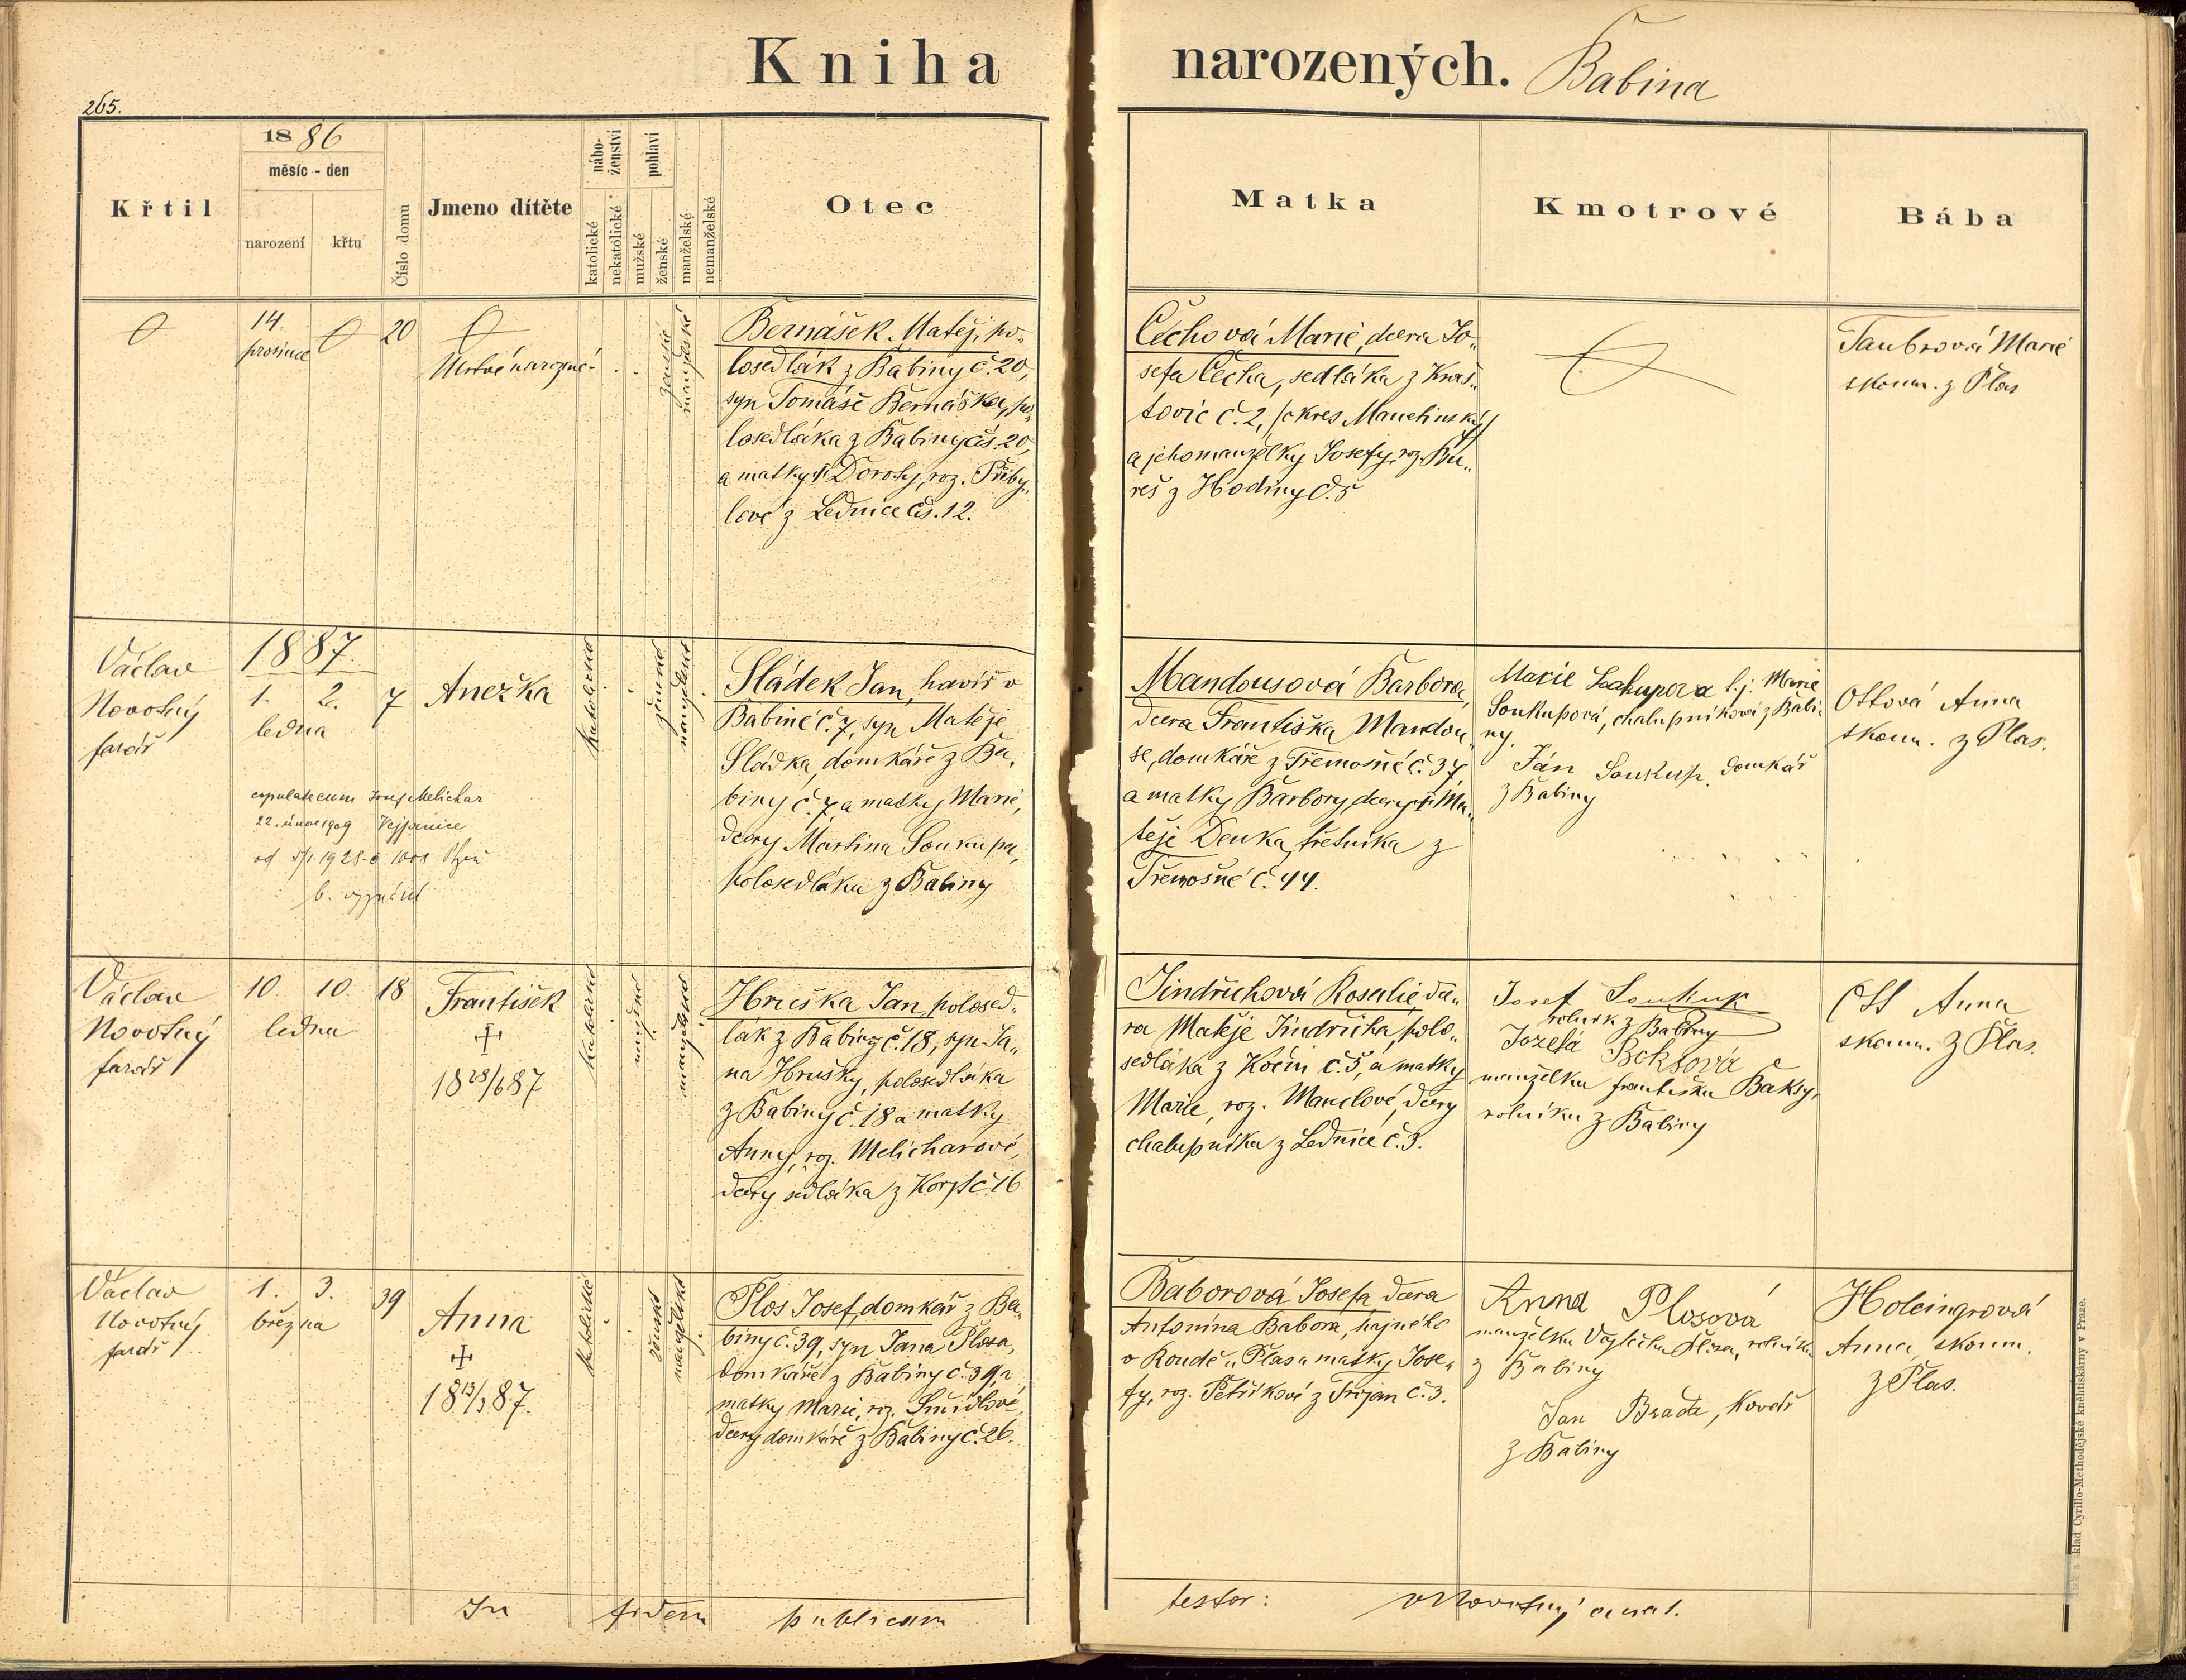 Kniha narozených. Babina
265.
1886
měsíc - den
Křtil
narození
křtu
Číslo domu
Jmeno dítěte
nábo-
ženství
katolické
nekatolické
pohlaví
mužské
ženské
manželské
nemanželské
Otec
Matka
Kmotrové
Bába
14.
prosince
20
Mrtvě narozené
ženské
manželské
Bernášek Matěj, po-
losedlák z Babiny č. 20,
syn Tomáše Bernáška, po-
losedláka z Babiny čís. 20,
a matky † Doroty, roz. Přiby-
lové z Lednice čís. 12.
Čechová Marie, dcera Jo-
sefa Čecha, sedláka z
tovic č. 2, (okres Manětínský)
a jeho manželky Josefy, roz. Bu-
reš z Hodiny č. 5
Taubrová Marie
skoum. z Plas
Václav
Novotný
farář
1887.
1. 2.
ledna
7
Anežka
katolické
ženské
manželské
copulat cum Josef Melichar
22. února 1909 Vejprnice
od 1928 č. 1008 Plzeň
b. vyznání
Sládek Jan, havíř v
Babině č. 7, syn Matěje
Sládka, domkáře z Ba-
biny č. 7, a matky Marie,
dcery Martina Soukupa,
polosedláka z Babiny
Mandousová Barbora,
dcera Františka Mandou-
se, domkáře z Třemošné č. 37,
a matky Barbory, dcery † Ma-
těje Denka, třetníka z
Třemošné č. 44.
Marie Soukupova t.j. Marie
Soukupová, chalupníková z Babi-
ny.
Ján Soukup, domkář
z Babiny
Ottová Anna
skoum. z Plas.
Václav
Novotný
farář
10. 10.
ledna
18
František
†
18 28/6 87
katolické
mužské
manželské
Hruška Jan, polosed-
lák z Babiny č. 18, syn Ja-
na Hrušky, polosedláka
z Babiny č. 18 a matky
Anny, roz. Melicharové,
dcery sedláka z Koryt č. 16
Jindřichová Rosalie, dce-
ra Matěje Jindřicha, polo-
sedláka z Kočín č. 5, a matky
Marie, roz. Manclové, dcery
chalupníka z Lednice č. 3.
Josef Soukup
rolník z Babiny
Jozefa Boksová
manželka Františka Baksy,
rolníka z Babiny
Ott Anna
skoum. z Plas.
Václav
Novotný
farář
1. 3.
března
39
Anna
†
18 13/3 87.
katolické
ženské
manželské
Plos Josef, domkář z Ba-
biny č. 39, syn Jana Plosa,
domkáře z Babiny č. 39, a
matky Marie, roz. Šmídlové,
dcery domkáře z Babiny č. 26.
Baborová Josefa dcera
Antonína Babora, hajného
v Rondě u Plas a matky Jose-
fy, roz. Petříkové z Trojan č. 3.
Anna Plosová
manželka Vojtěcha Plosa, rolníka
z Babiny
Jan Brada, kovář
z Babiny
Holeingrová
Anna skoum.
z Plas.
In fidem publicam testor: V Novotný
klad Cyrillo-Methodějské knihtiskárny v Praze.